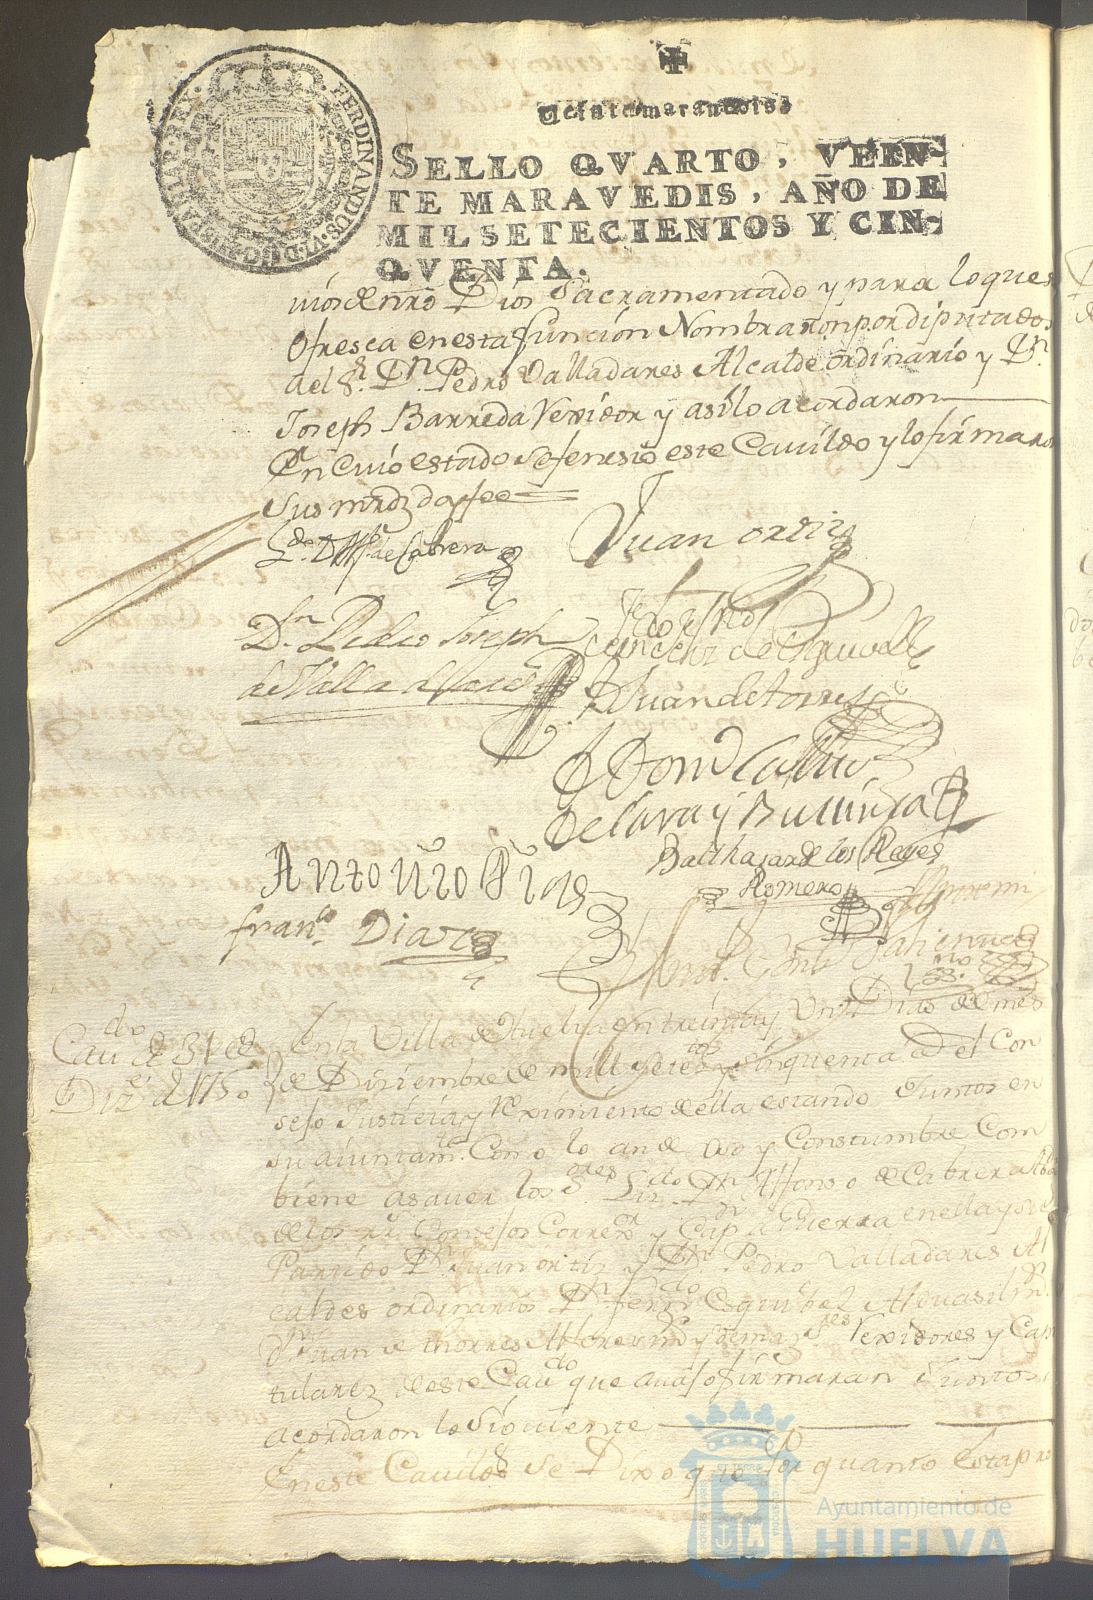 FERDINANDUS. VI. D. G. HISPANIAR. REX.
Veinte maravedis
SELLO QVARTO, VEIN-
TE MARAVEDIS, AÑO DE
MIL SETECIENTOS Y CIN-
QVENTA.
nros Dios Sacramentado y para lo que se
Ofresca en esta funcion Nombraron por diputados
a el Sr. Dn. Pedro Valladares Alcalde ordinario y Dn.
Joseph Barreda Rexidor y asi lo acordaron
En cuio estado se fenesio este Cavildo y lo firmaron
Sus mrdz doy fee
Ldo. Dn. Alfo. de Cabrera
Juan ortiz
Dn. Pedro Joseph
de Valladares
Juan de torres
de Lara y
Balthasar de los Reyes
Romero
Antonio
Franco. Diaz
Cavdo. de 31 de
Dize. de 1750
En la Villa de Huelva en treinta y Un Dias del mes
de Diziembre de mill setetos. y sinquenta as. el Con
sejo Justicia y Reximiento de ella estando Juntos en
su aiuntamto. Como lo an de uso y Constumbre Com
biene a saver los Sres. Lizdo. Dn. Alfonso de Cabrera Abdo.
de los rs. Consejos Correxor. y Capn. a Guerra en ella y su
Partido Dn. Juan ortiz y Dn. Pedro Valladares Al
caldes ordinarios Dn. Ferndo. Esquibel Alguasil mr.
Dn. Juan de thorres y demas Sres. Rexidores y Capi
tulares de este Cavdo. que avajo firmaran Juntos
acordaron lo Siguiente
En este Cavildo Se Dixo que Por quanto esta pro
Ayuntamiento de
HUELVA